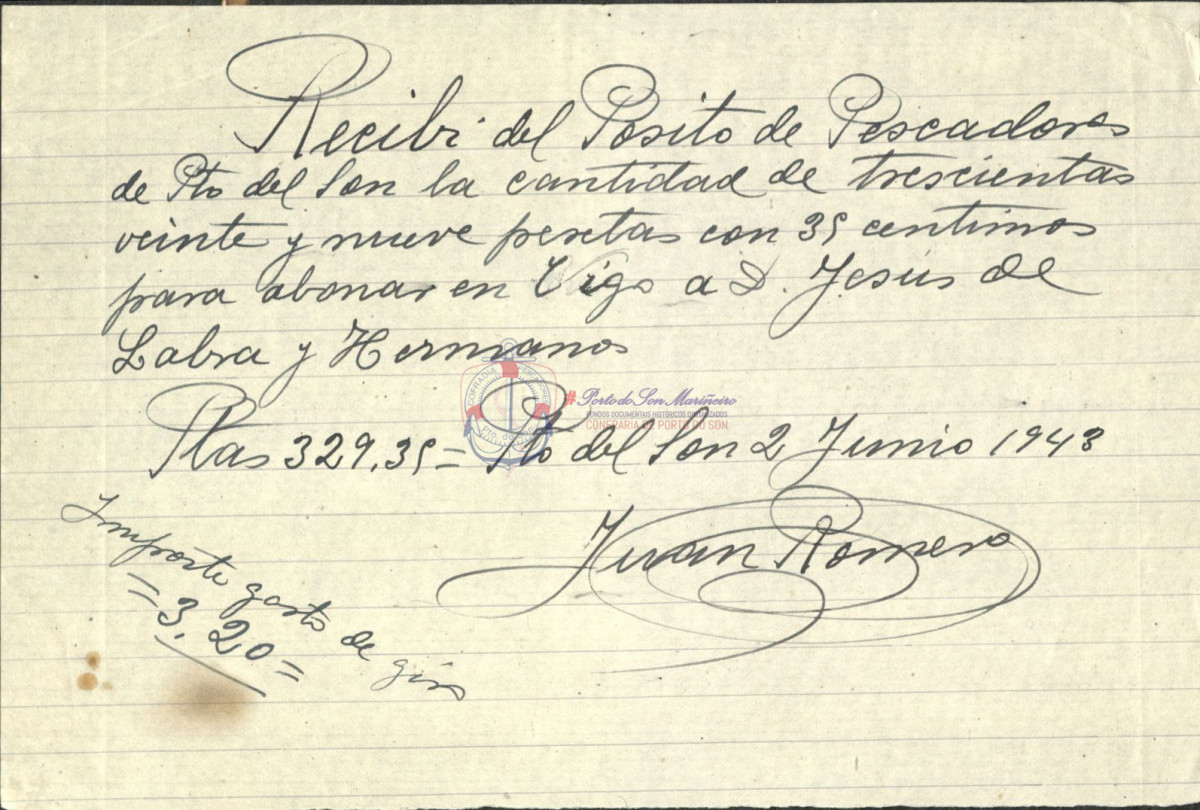 Recibí del Posito de Pescadores
de Pto del Son la cantidad de trescientas
veinte y nueve pesetas con 35 centimos
para abonar en Vigo a D. Jesús de
Labra y Hermanos
COFRADIA
#PortodoSon Mariñeiro
FONDOS DOCUMENTAIS HISTÓRICOS DIXITALIZADOS
CONFRARIA DE PORTO DO SON
Ptas 329,35= Pto del Son 2 Junio 1943
Juan Romero
Importe gasto de giro
=3,20=